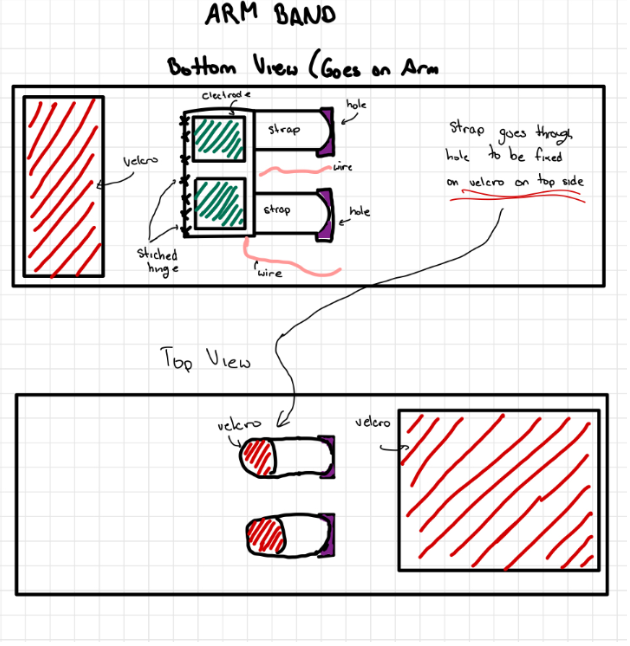 ARM BAND
Bottom View (Goes on Arm
Electrode
hole
strap
velcro
wire
strap
hole
Stiched
hinge
wire
Strap goes through
hole to be fixed
on velcro on top side
Top View
velcro
velcro